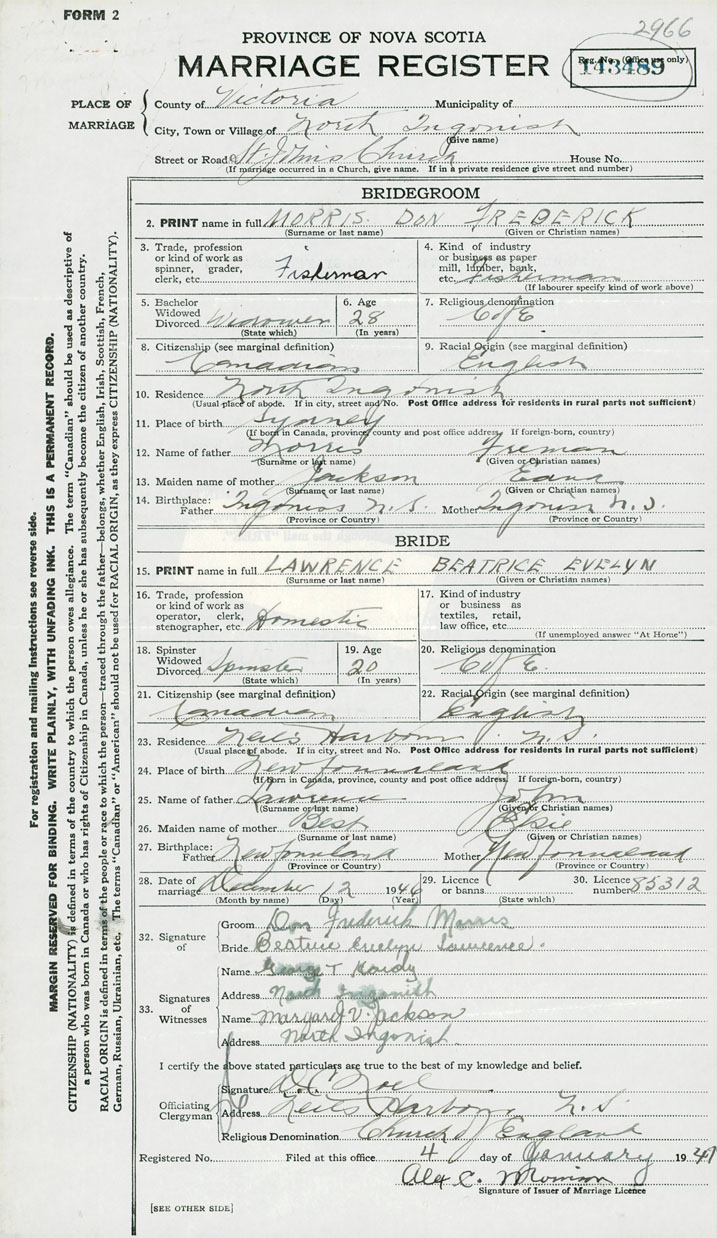 FORM 2
2966
PROVINCE OF NOVA SCOTIA
MARRIAGE REGISTER
Reg. No. (Office use only)
143489
PLACE OF MARRIAGE
County of Victoria Municipality of
City, Town or Village of North Ingonish
(Give name)
Street or Road St John's Church House No.
(If marriage occurred in a Church, give name. If in a private residence give street and number)
BRIDEGROOM
2. PRINT name in full MORRIS DON FREDERICK
(Surname or last name) (Given or Christian names)
3. Trade, profession or kind of work as spinner, grader, clerk, etc. Fisherman
4. Kind of industry or business as paper mill, lumber, bank, etc. Fisherman
(If labourer specify kind of work above)
5. Bachelor Widowed Divorced Widower
(State which)
6. Age 28
(In years)
7. Religious denomination C of E
8. Citizenship (see marginal definition) Canadian
9. Racial Origin (see marginal definition) English
10. Residence North Ingonish
(Usual place of abode. If in city, street and No. Post Office address for residents in rural parts not sufficient)
11. Place of birth Sydney
(If born in Canada, province, county and post office address. If foreign-born, country)
12. Name of father Morris Freman
(Surname or last name) (Given or Christian names)
13. Maiden name of mother Jackson Edna
(Surname or last name) (Given or Christian names)
14. Birthplace: Father Ingonish N.S. Mother Ingonish N.S.
(Province or Country) (Province or Country)
BRIDE
15. PRINT name in full LAWRENCE BEATRICE EVELYN
(Surname or last name) (Given or Christian names)
16. Trade, profession or kind of work as operator, clerk, stenographer, etc. Homestic
17. Kind of industry or business as textiles, retail, law office, etc.
(If unemployed answer "At Home")
18. Spinster Widowed Divorced Spinster
(State which)
19. Age 20
(In years)
20. Religious denomination C of E.
21. Citizenship (see marginal definition) Canadian
22. Racial Origin (see marginal definition) English
23. Residence Neil's Harbour N.S.
(Usual place of abode. If in city, street and No. Post Office address for residents in rural parts not sufficient)
24. Place of birth Newfoundland
(If born in Canada, province, county and post office address. If foreign-born, country)
25. Name of father Lawrence John
(Surname or last name) (Given or Christian names)
26. Maiden name of mother Best Elsie
(Surname or last name) (Given or Christian names)
27. Birthplace: Father Newfoundland Mother Newfoundland
(Province or Country) (Province or Country)
28. Date of marriage December 12 1946
(Month by name) (Day) (Year)
29. Licence or banns
(State which)
30. Licence number 85312
32. Signature of
Groom Don Frederick Morris
Bride Beatrice Evelyn Lawrence.
33. Signatures of Witnesses
Name George T Hardy
Address North Ingonish
Name Margaret V. Jackson
Address North Ingonish.
I certify the above stated particulars are true to the best of my knowledge and belief.
Officiating Clergyman
Signature D.C. Noel
Address Neil's Harbour, N.S.
Religious Denomination Church of England
Registered No. Filed at this office 4 day of January 1947
Alex C.
Signature of Issuer of Marriage Licence
[SEE OTHER SIDE]
For registration and mailing instructions see reverse side.
MARGIN RESERVED FOR BINDING. WRITE PLAINLY, WITH UNFADING INK. THIS IS A PERMANENT RECORD.
CITIZENSHIP (NATIONALITY) is defined in terms of the country to which the person owes allegiance. The term "Canadian" should be used as descriptive of
a person who was born in Canada or who has rights of Citizenship in Canada, unless he or she has subsequently become the citizen of another country.
RACIAL ORIGIN is defined in terms of the people or race to which the person—traced through the father—belongs, whether English, Irish, Scottish, French,
German, Russian, Ukrainian, etc. The terms "Canadian" or "American" should not be used for RACIAL ORIGIN, as they express CITIZENSHIP (NATIONALITY).